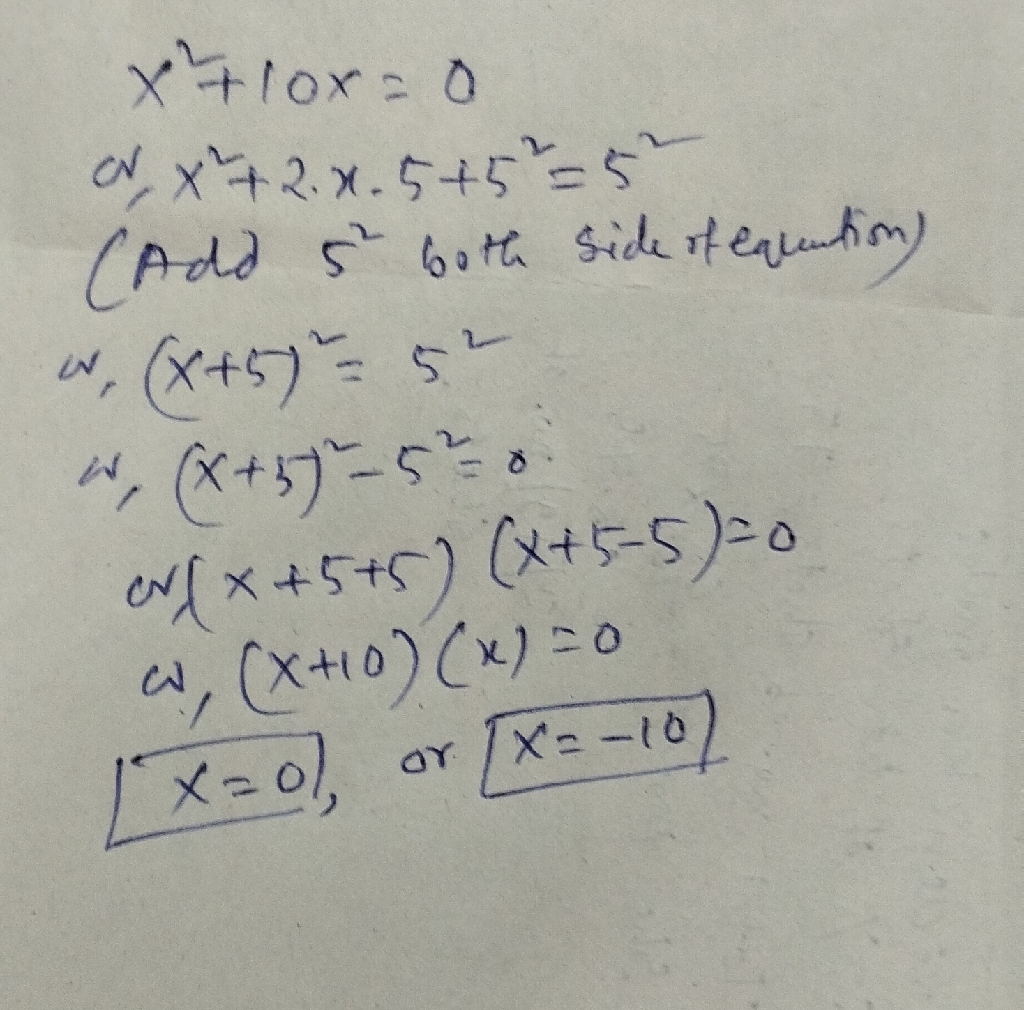 x²+10x=0
or, x²+2.x.5+5²=5²
(Add 5² both side of equation)
or, (x+5)²=5²
or, (x+5)²-5²=0
or (x+5+5) (x+5-5)=0
or, (x+10) (x)=0
x=0, or x=-10